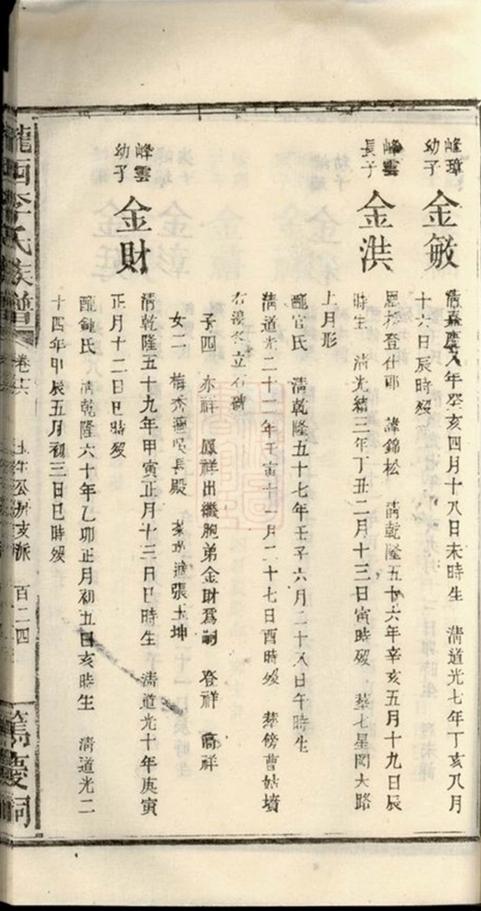 峰璋
幼子
金敏
清嘉慶八年癸亥四月十八日未時生　清道光七年丁亥八月
十六日辰時歿
峰雲
長子
金洪
恩授登仕郎　諱錦松　清乾隆五十六年辛亥五月十九日辰
時生　清光緒三年丁丑二月十三日寅時歿　葬七星岡大路
上月形
配官氏　清乾隆五十七年壬子六月二十八日午時生
清道光二十二年壬寅十一月二十七日酉時歿　葬傍曹姑墳
右邊矣立石碑
子四　永祥　鳳祥出繼胞弟金財為嗣　登祥　高祥
女二　梅秀適吳長殿　適張玉坤
峰雲
幼子
金財
清乾隆五十九年甲寅正月十三日巳時生　清道光十年庚寅
正月十二日巳時歿
配鍾氏　清乾隆六十年乙卯正月初五日亥時生　清道光二
十四年甲辰五月初三日巳時歿
隴西李氏族譜
卷十六
百二四
篤慶祠